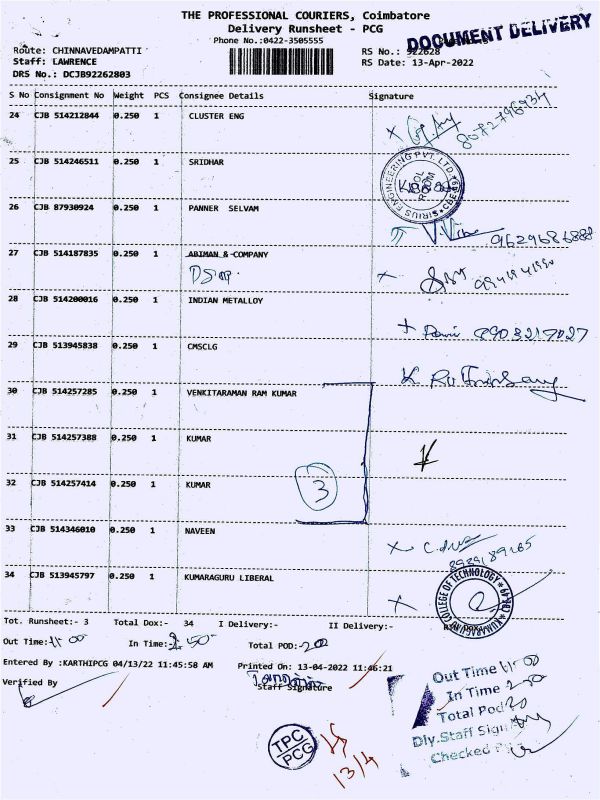 THE PROFESSIONAL COURIERS, Coimbatore
Delivery Runsheet - PCG
DOCUMENT DELIVERY
Phone No.:0422-3505555
Route: CHINNAVEDAMPATTI
RS No.: 922628
Staff: LAWRENCE
RS Date: 13-Apr-2022
DRS No.: DCJB92262803
S No Consignment No Weight PCS Consignee Details Signature
24 CJB 514212844 0.250 1 CLUSTER ENG
8072796934
25 CJB 514246511 0.250 1 SRIDHAR
SIRIUS ENGINEERING PVT. LTD.
26 CJB 87930924 0.250 1 PANNER SELVAM
9629686888
27 CJB 514187835 0.250 1 ABIMAN & COMPANY
28 CJB 514200016 0.250 1 INDIAN METALLOY
29 CJB 513945838 0.250 1 CMSCLG
30 CJB 514257285 0.250 1 VENKITARAMAN RAM KUMAR
31 CJB 514257388 0.250 1 KUMAR
32 CJB 514257414 0.250 1 KUMAR
3
33 CJB 514346010 0.250 1 NAVEEN
34 CJB 513945797 0.250 1 KUMARAGURU LIBERAL
KUMARAGURU COLLEGE OF TECHNOLOGY
Tot. Runsheet:- 3 Total Dox:- 34 I Delivery:- II Delivery:-
Out Time: 11 00 In Time: 2 50 Total POD:-
Entered By :KARTHIPCG 04/13/22 11:45:58 AM Printed On: 13-04-2022 11:46:21
Verified By Staff Signature
Out Time 11 00
In Time 2 50
Total Pod 20
Dly.Staff Sign
Checked
TPC
PCG
13/4